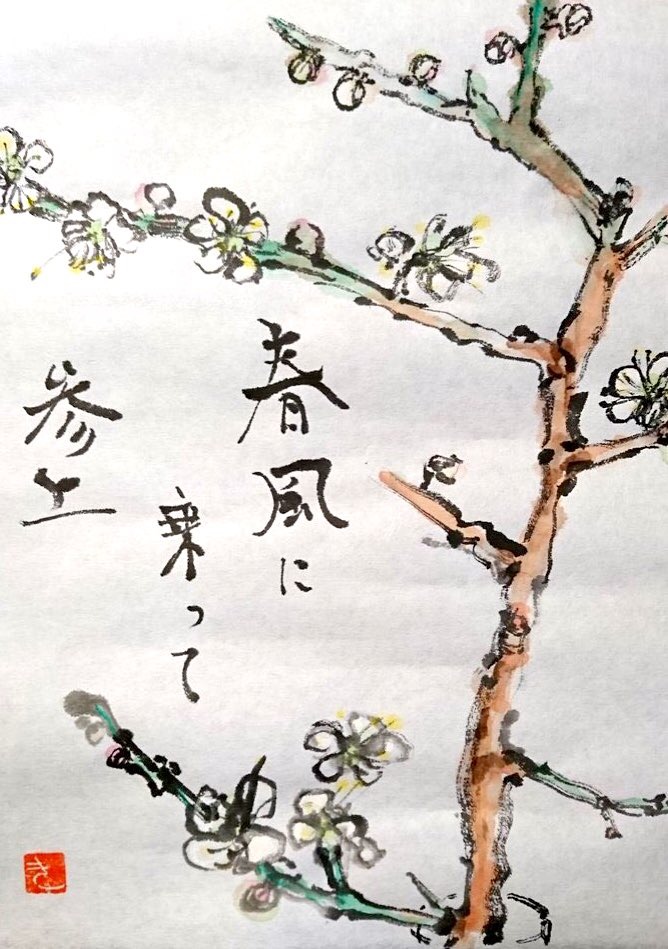 春風に
乗って
参上